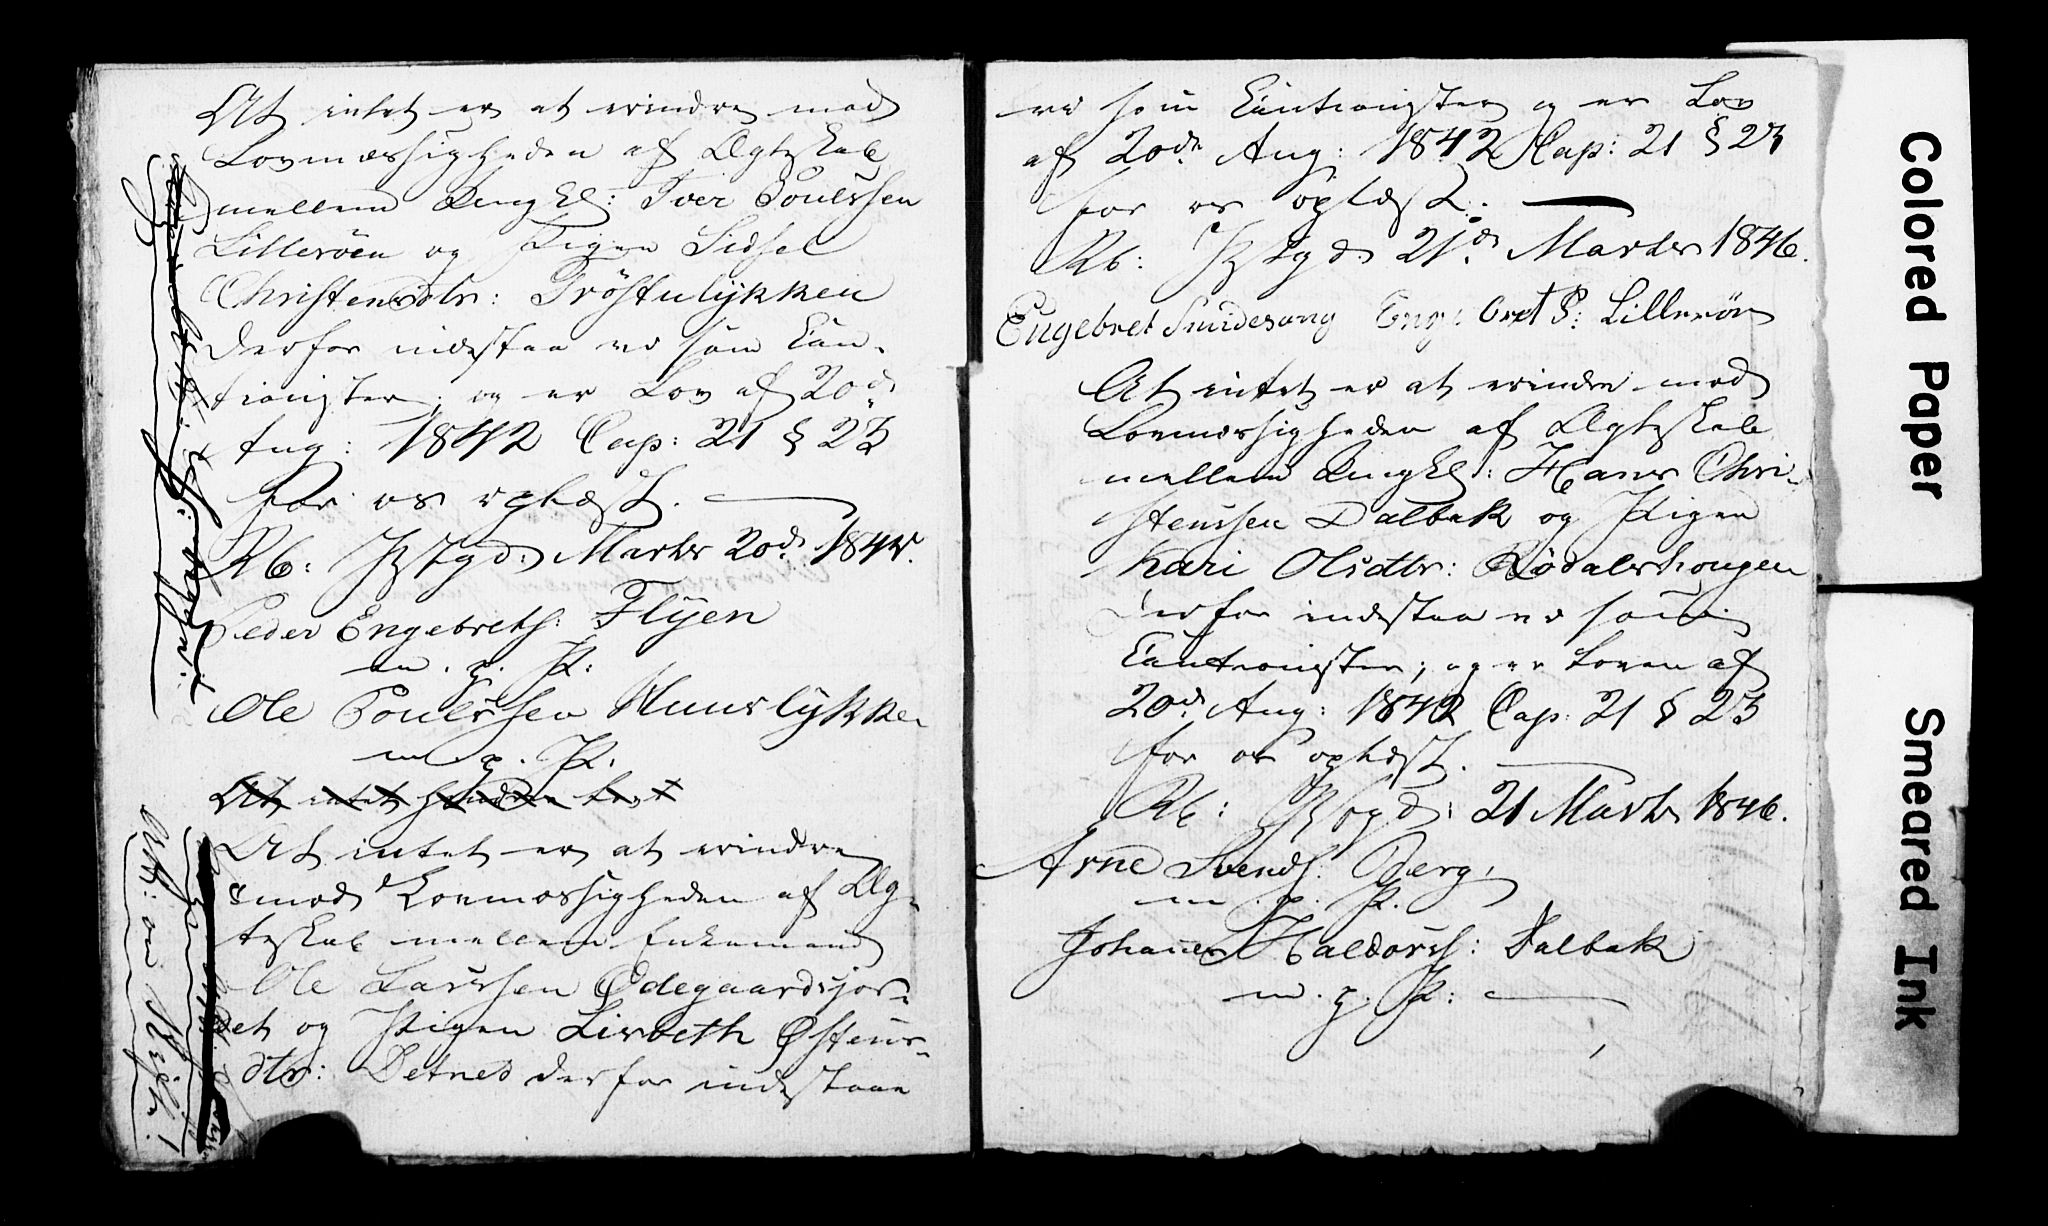 At intet er at erindre mod
Lovmæssigheden af Ægteskab
mellem Ungkl: Iver Poulssen
Lillerøen og Pigen Sidsel
Christensdtr: Prøstulykken
derfor indestaa vi som Cau-
tionister, og er Lov af 20de
Aug: 1842 Cap: 21 § 23
for os oplæst.
Rb: Pstgd: Marts 20de 1845.
Peder Engebrets: Flÿen
m. p. P:
Ole Poulssen Huuslykken
m. p. P.
At intet
At intet er at erindre
mod Lovmæssigheden af Æg-
teskab mellem Enkemand
Ole Larssen Ødegaardsjor-
det og Pigen Lisbeth Østens-
dtr: Betned derfor indestaae
vi som Cautionister og er Lov
af 20de Aug: 1842 Cap: 21 § 23
for os oplæst.
Rb: Pstgd. 21de Marts 1846.
Engebret Smidesang Engebret P: Lillerøen
At intet er at erindre mod
Lovmæssigheden af Ægteskab
mellem Ungkl: Hans Chri-
stenssen Dalbak og Pigen
Kari Olsdtr: Rødalshougen
derfor indestaa vi som
Cautionister, og er Loven af
20de Aug: 1842 Cap: 21 § 23
for os oplæst.
Rb: 21 Marts 1846.
Arne Svends: Berg
m. p. P.
Johannes Haldorss: Dalbak
m. p. P:
Colored Paper
Smeared Ink